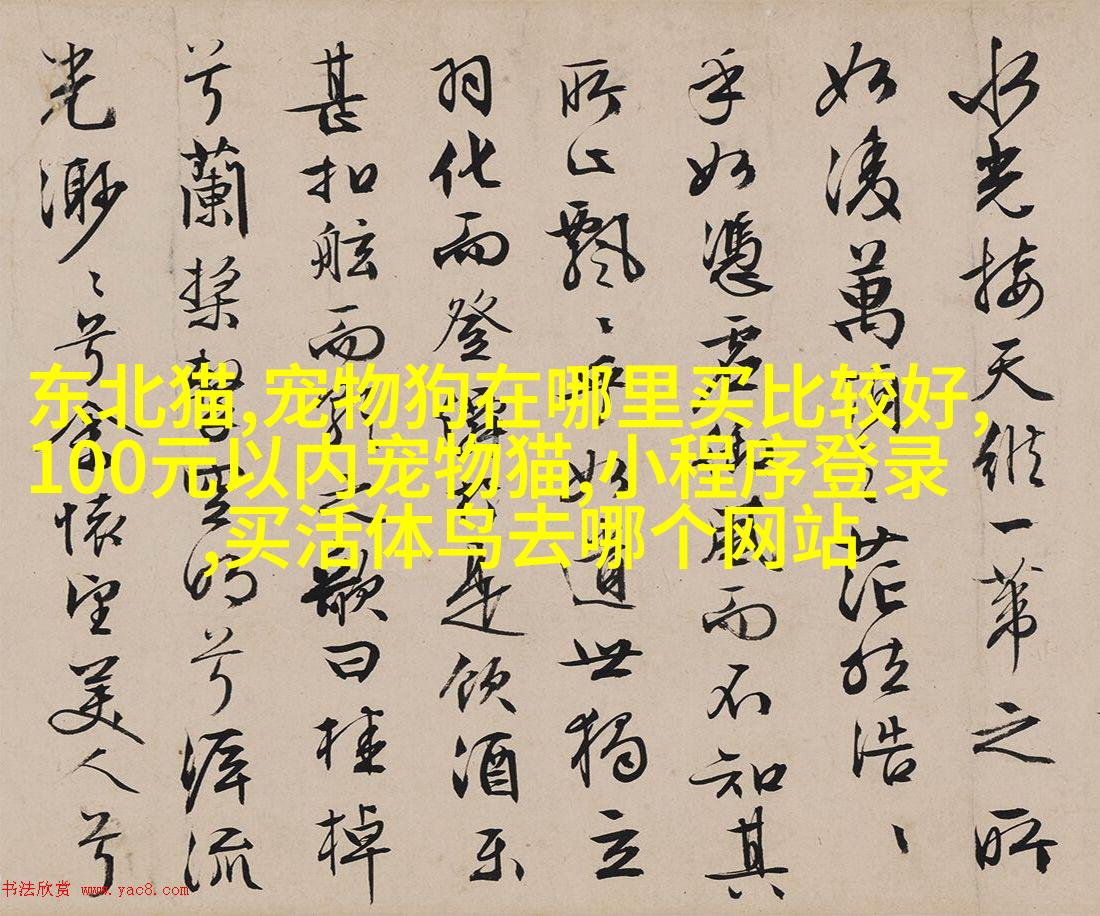 水光接天縱一葦之所
如淩萬頃之茫然浩〻
乎如憑虛御風而不知其
所止飄〻乎如遺世獨立
羽化而登僊於是飲酒樂
甚扣舷而歌之歌曰桂棹
兮蘭槳擊空明兮泝流
光渺〻兮余懷望美人兮
东北猫,宠物狗在哪里买比较好,
100元以内宠物猫,小程序登录
,买活体鸟去哪个网站
书法欣赏 www.yac8.com